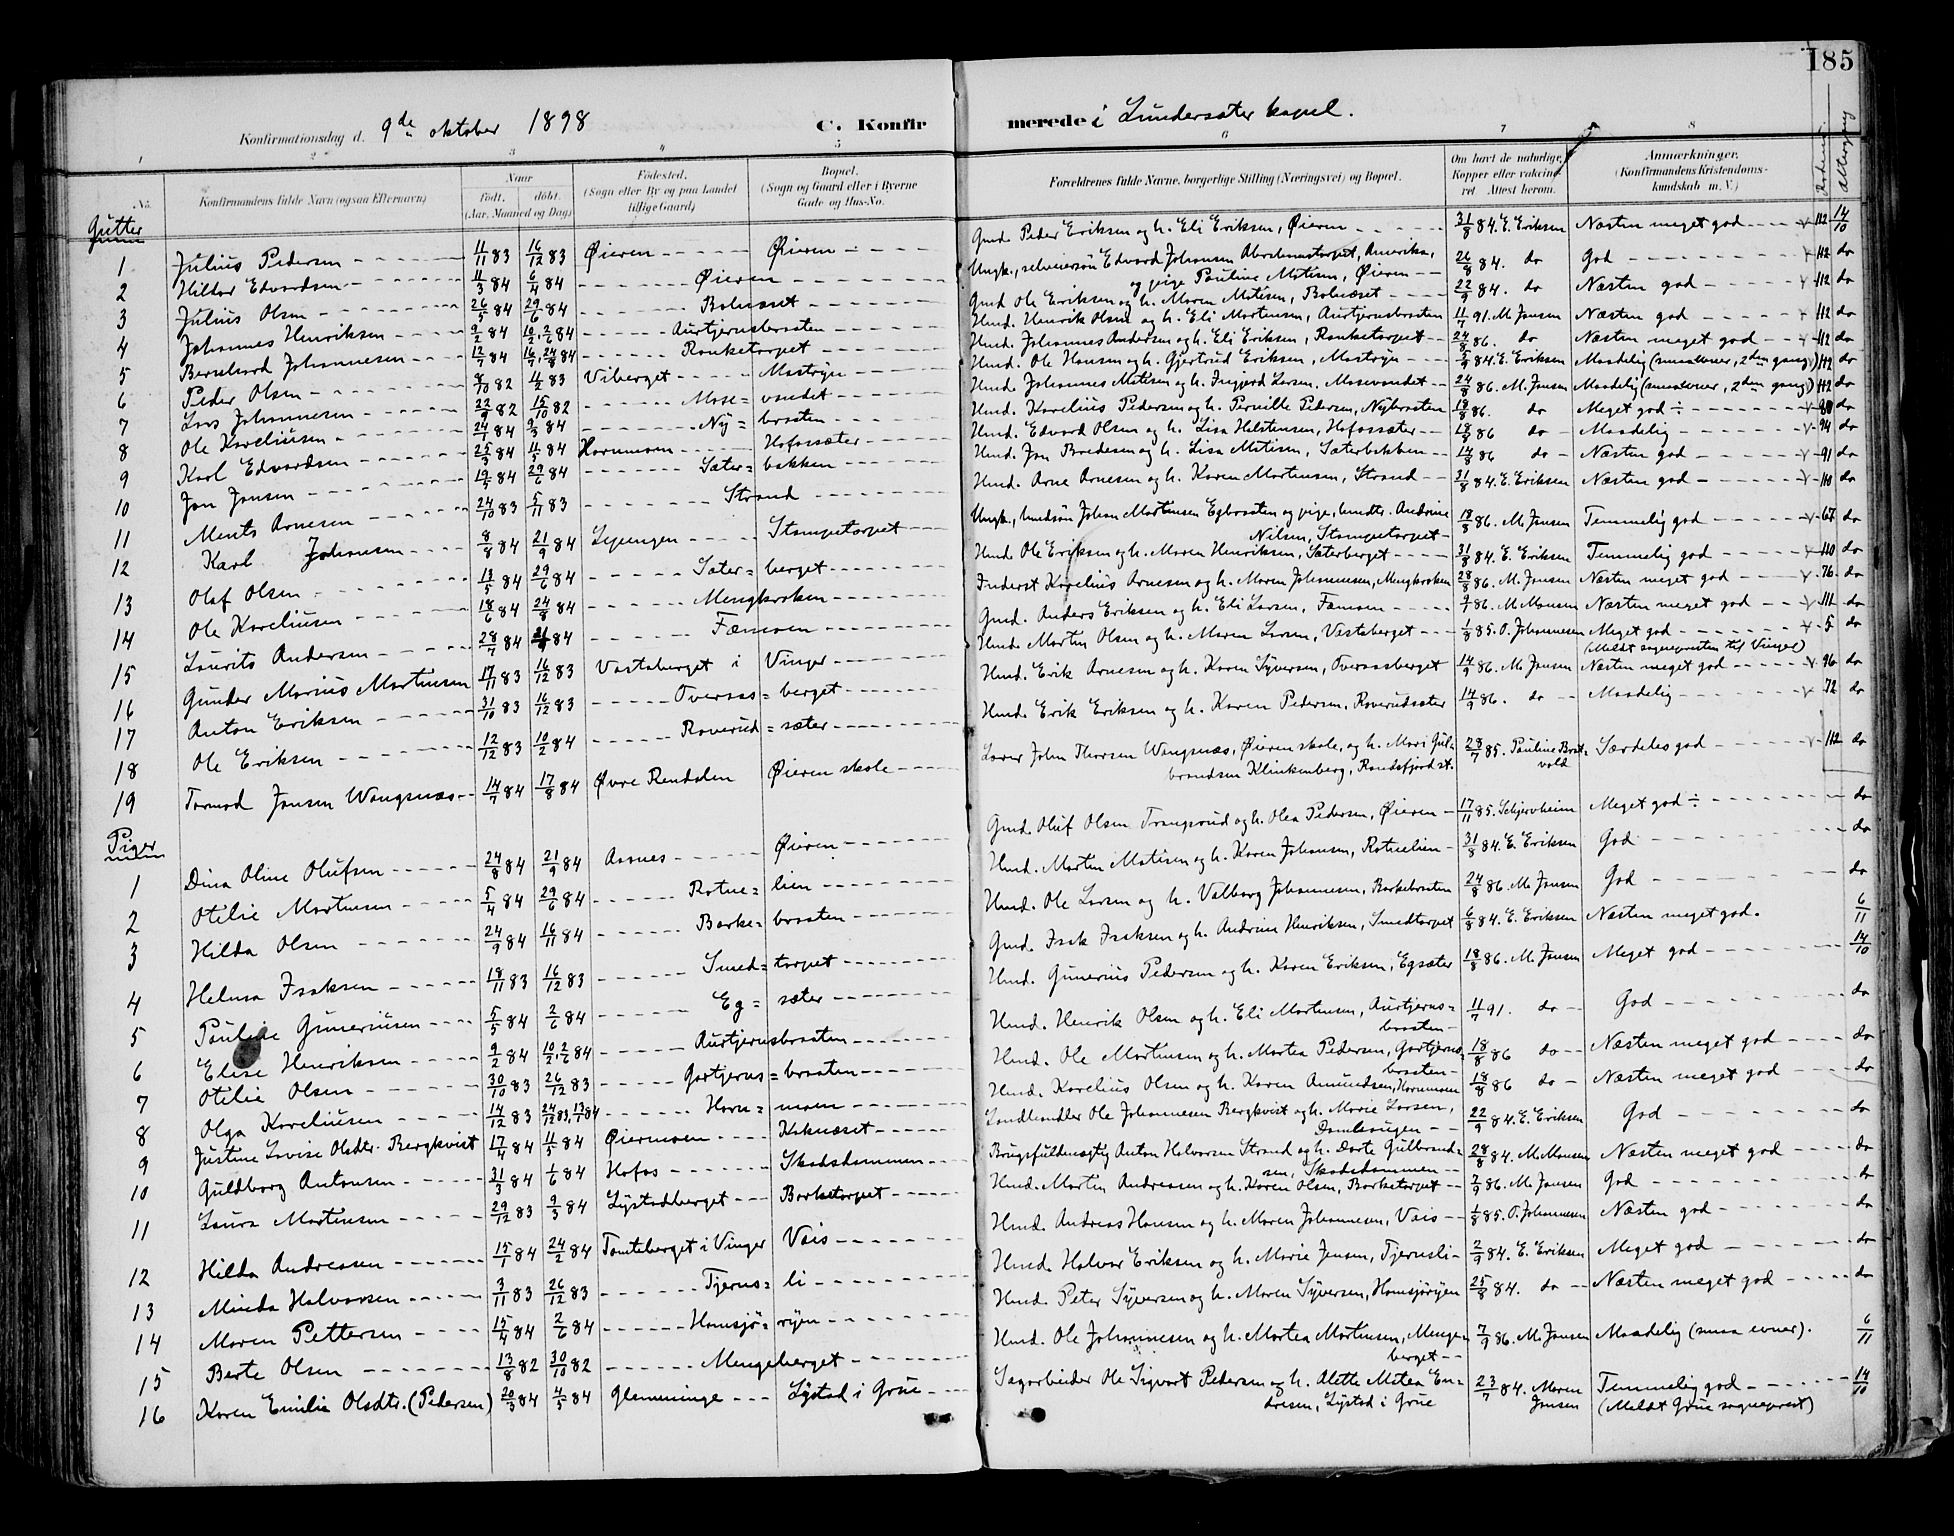 185
Konfirmationsdag d. 9de oktober 1898 C. Konfirmerede i Lundersæter kapel.
1 2 3 4 5 6 7 8
No. Konfirmandens fulde Navn (ogsaa Efternavn) Naar født. døbt. (Aar, Maaned og Dag) Fødested. (Sogn eller By og paa Landet tillige Gaard) Bopæl. (Sogn og Gaard eller i Byerne Gade og Hus-No. Forældrenes fulde Navne, borgerlige Stilling (Næringsvei) og Bopæl. Om havt de naturlige Kopper eller vaccineret. Attest herom. Anmærkninger. (Konfirmandens Kristendomskundskab m. V.) Altergang
Gutter
1 Julius Pedersen 11/11 83 16/12 83 Øieren Øieren Gmd. Peder Eriksen og h. Eli Eriksen, Øieren 31/8 84. E. Eriksen Næsten meget god 112 14/10
2 Hildor Edvardsen 11/3 84 6/4 84 Øieren Ungk., selveiersøn Edvard Johansen Abrahamstorpet, Amerika, og pige Pauline Matisen, Øieren 26/8 84. do God 112 do
3 Julius Olsen 26/5 84 29/6 84 Bolnæset Gmd Ole Eriksen og h. Maren Matisen, Bolnæset 22/9 84. do Næsten god 112 do
4 Johannes Henriksen 9/2 84 10/2, 2/6 84 Aurtjernsbraaten Hmd. Henrik Olsen og h. Eli Mortensen, Aurtjernsbraaten 11/7 91. M. Jansen Næsten god 112 do
5 Bernhard Johannesen 12/7 84 16/7, 24/8 84 Ronketorpet Hmd. Johannes Andersen og h. Eli Eriksen, Ronketorpet 24/8 86. do Næsten meget god 112 do
6 Peder Olsen 8/10 82 4/2 83 Viberget Mastryen Hmd. Ole Hansen og h. Gjertrud Eriksen, Mastryen 5/9 84. E. Eriksen Maadelig (smaa evner, 2den gang) 112 do
7 Lars Johannesen 22/9 82 15/10 82 Mose= vandet Hmd. Johannes Matisen og h. Ingjerd Larsen, Mosevandet 24/8 86. M. Jansen Maadelig (smaa evner, 2den gang) 112 do
8 Ole Kareliusen 24/1 84 9/3 84 Ny= braaten Hmd. Karelius Pedersen og h. Pernille Pedersen, Nybraaten 18/8 86. do Meget god ÷ do
9 Karl Edvardsen 25/3 84 11/5 84 Hornmoen Hofossæter Hmd. Edvard Olsen og h. Lisa Halstensen, Hofossæter 18/8 86 do Maadelig 94 do
10 Jon Jonsen 19/5 84 29/6 84 Sæter= bakken Hmd. Jon Bredesen og h. Lisa Matisen, Sæterbakken 14/8 86 do Næsten god 91 do
11 Ments Arnesen 24/10 83 5/11 83 Strand Hmd. Arne Arnesen og h. Karen Mortensen, Strand 31/8 84. E. Eriksen Næsten god 110 do
12 Karl Johansen 8/8 84 21/9 84 Stampetorpet Ungk., hmdsøn Johan Mortensen Egbraaten og pige, hmdtr. Andrine Nilsen, Stampetorpet 18/8 86. M. Jansen Temmelig god 67 do
13 Olaf Olsen 13/5 84 29/6 84 Sæter= berget Hmd. Ole Eriksen og h. Maren Henriksen, Sæterberget 31/8 84. E. Eriksen Temmelig god 110 do
14 Ole Kareliusen 18/6 84 24/8 84 Mengkroken Inderst Karelius Arnesen og h. Maren Johannesen, Mengkroken 28/8 86. M. Jansen Næsten meget god 76 do
15 Laurits Andersen 28/7 84 84 Fæmoen Gmd. Anders Eriksen og h. Eli Larsen, Fæmoen 86. M. Monsen Næsten meget god 111 do
16 Gunder Marius Martinsen 17/11 83 16/12 83 Vastaberget i Vinger Hmd. Martin Olsen og h. Maren Larsen, Vastaberget 1/8 85. O. Johannesen Meget god 5 do
(Meldt sognepresten til Vinger)
17 Anton Eriksen 31/10 83 16/12 83 Overaas= berget Hmd. Erik Arnesen og h. Karen Syversen, Overaasberget 14/9 86. M. Jansen Næsten meget god 96 do
18 Ole Eriksen 12/12 83 10/2 84 Raverud= sæter Hmd. Erik Eriksen og h. Karen Pedersen, Raverudsæter 14/9 86. do Maadelig 72 do
19 Tormod Jonsen Wangsnæs 14/7 84 17/8 84 Øvre Rendalen Øieren skole Lærer John Thorsen Wangsnæs, Øieren skole, og h. Mari Gulbrandsen Klinkenberg, Randsfjord st. 28/7 85. Pauline Bratvold Særdeles god 112 do
Piger
1 Dina Oline Olufsen 24/8 84 21/9 84 Aasnes Øieren Gmd. Oluf Olsen og h. Olea Pedersen, Øieren 17/11 85. Meget god ÷ do
2 Otilie Martinsen 5/4 84 29/6 84 Rotne= lien Hmd. Martin Matisen og h. Karen Johansen, Rotnelien 31/8 84. E. Eriksen God do
3 Hilda Olsen 24/9 84 16/11 84 Barke= braaten Hmd. Ole Larsen og h. Valborg Johannesen, Barkebraaten 24/8 86. M. Jansen God do
4 Helma Isaksen 18/11 83 16/12 83 Smed= torpet Gmd. Isak Isaksen og h. Andrine Henriksen, Smedtorpet 6/8 84. E. Eriksen Næsten meget god. 6/11
5 Pauline Guneriusen 5/5 84 2/6 84 Eg= sæter Hmd. Gunerius Pedersen og h. Karen Eriksen, Egsæter 18/8 86. M. Jansen Meget god 14/10
6 Elise Henriksen 9/2 84 10/2, 2/6 84 Aurtjernsbraaten Hmd. Henrik Olsen og h. Eli Mortensen, Aurtjernsbraaten 11/7 91. do God do
7 Otilie Olsen 30/10 83 26/12 83 Gortjerns= braaten Hmd. Ole Mortensen og h. Martea Pedersen, Gortjernsbraaten 18/8 86 do Næsten meget god do
8 Olga Kareliusen 14/12 83 24/12 83, 84 Horn= moen Hmd. Karelius Olsen og h. Karen Amundsen, Hornmoen 18/8 86 do Næsten meget god do
9 Justine Lovise Olsdtr. Bergkvist 17/4 84 11/5 84 Øiermoen Koknæset Landhandler Ole Johannesen Bergkvist og h. Marie Larsen, 22/9 84. E. Eriksen God do
10 Guldborg Antonsen 31/3 84 1/6 84 Hofos Skadsdammen Brugsfuldmægtig Anton Halvorsen Strand og h. Dorte Gulbrandsen, Skadsdammen 28/8 84. M. Monsen Næsten meget god do
11 Laura Martinsen 29/12 83 9/3 84 Lystadberget Barketorpet Hmd. Martin Andreassen og h. Karen Olsen, Barketorpet 2/9 86. M. Jansen God do
12 Hilda Andreasen 15/1 84 24/2 84 Tomteberget i Vinger Vais Hmd. Andreas Hansen og h. Maren Johannesen, Vais 1/8 85. O. Johannesen Næsten god do
13 Minda Halvorsen 3/11 83 26/12 83 Tjerns= li Hmd. Halvor Eriksen og h. Marie Jensen, Tjernsli 2/9 84. E. Eriksen Meget god do
14 Maren Pettersen 15/4 84 2/6 84 Hornsjø= ryen Hmd. Peter Syversen og h. Maren Syversen, Hornsjøryen 25/8 84. do Næsten meget god do
15 Berte Olsen 13/8 82 30/10 82 Mengeberget Hmd. Ole Johannesen og h. Martea Martinsen, Mengeberget 7/9 86. M. Jansen Maadelig (smaa evner). 6/11
16 Karen Emilie Olsdtr. (Pedersen) 20/3 84 4/5 84 Glemminge Lystad i Grue Sagarbeider Ole Sigvart Pedersen og h. Alette Matea Endresen, Lystad i Grue 23/7 84. Maren Jensen Temmelig god 14/10
(Meldt Grue sogneprest)